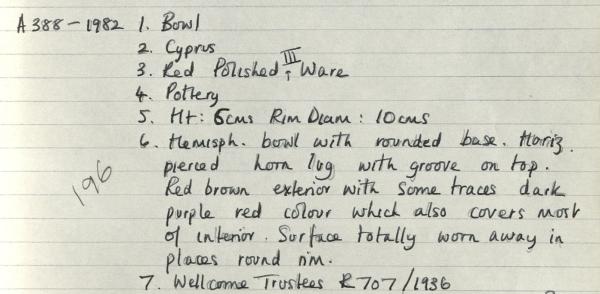 A388-1982 1. Bowl
2. Cyprus
3. Red Polished III Ware
4. Pottery
5. Ht: 6cms Rim Diam: 10cms
6. Hemisph. bowl with rounded base. Horiz.
pierced horn lug with groove on top.
Red brown exterior with some traces dark
purple red colour which also covers most
of interior. Surface totally worn away in
places round rim.
7. Wellcome Trustees R707/1936
196